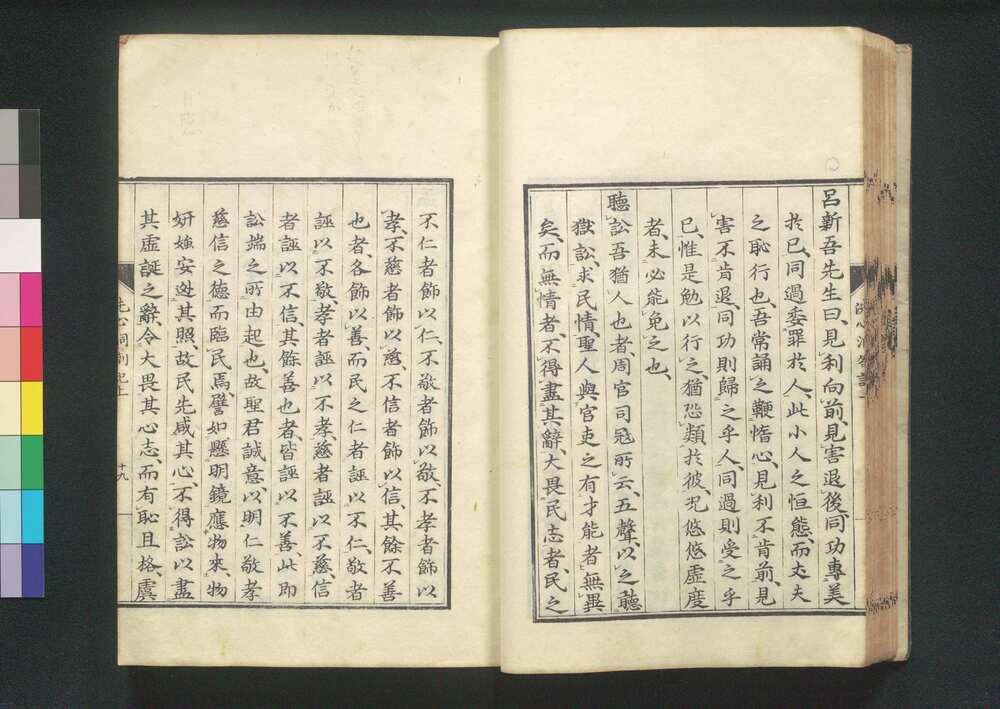 呂新吾先生曰、見利向前、見害退後、同功專美
於己、同過委罪於人、此小人之恒態、而丈夫
之恥行也、吾常誦之鞭惰心、見利不肯前、見
害不肯退、同功則歸之乎人、同過則受之乎
己、惟是勉以行之、猶恐類於彼、况悠悠虛度
者、未必能免之也、
聽訟吾猶人也者、周官司冦所云五聲、以之聽
獄訟、求民情、聖人與官吏之有才能者無異
矣、而無情者、不得盡其辭、大畏民志者、民之
不仁者飾以仁、不敬者飾以敬、不孝者飾以
孝、不慈者飾以慈、不信者飾以信、其餘不善
也者、各飾以善、而民之仁者誣以不仁、敬者
誣以不敬、孝者誣以不孝、慈者誣以不慈、信
者誣以不信、其餘善也者、皆誣以不善、此即
訟端之所由起也、故聖君誠意以明仁敬孝
慈信之德而臨民焉、譬如懸明鏡應物來、物
妍媸安逃其照、故民先感其心、不得訟以盡
其虛誕之辭、令大畏其心志、而有恥且格、虞
洗心洞劄記上
十九